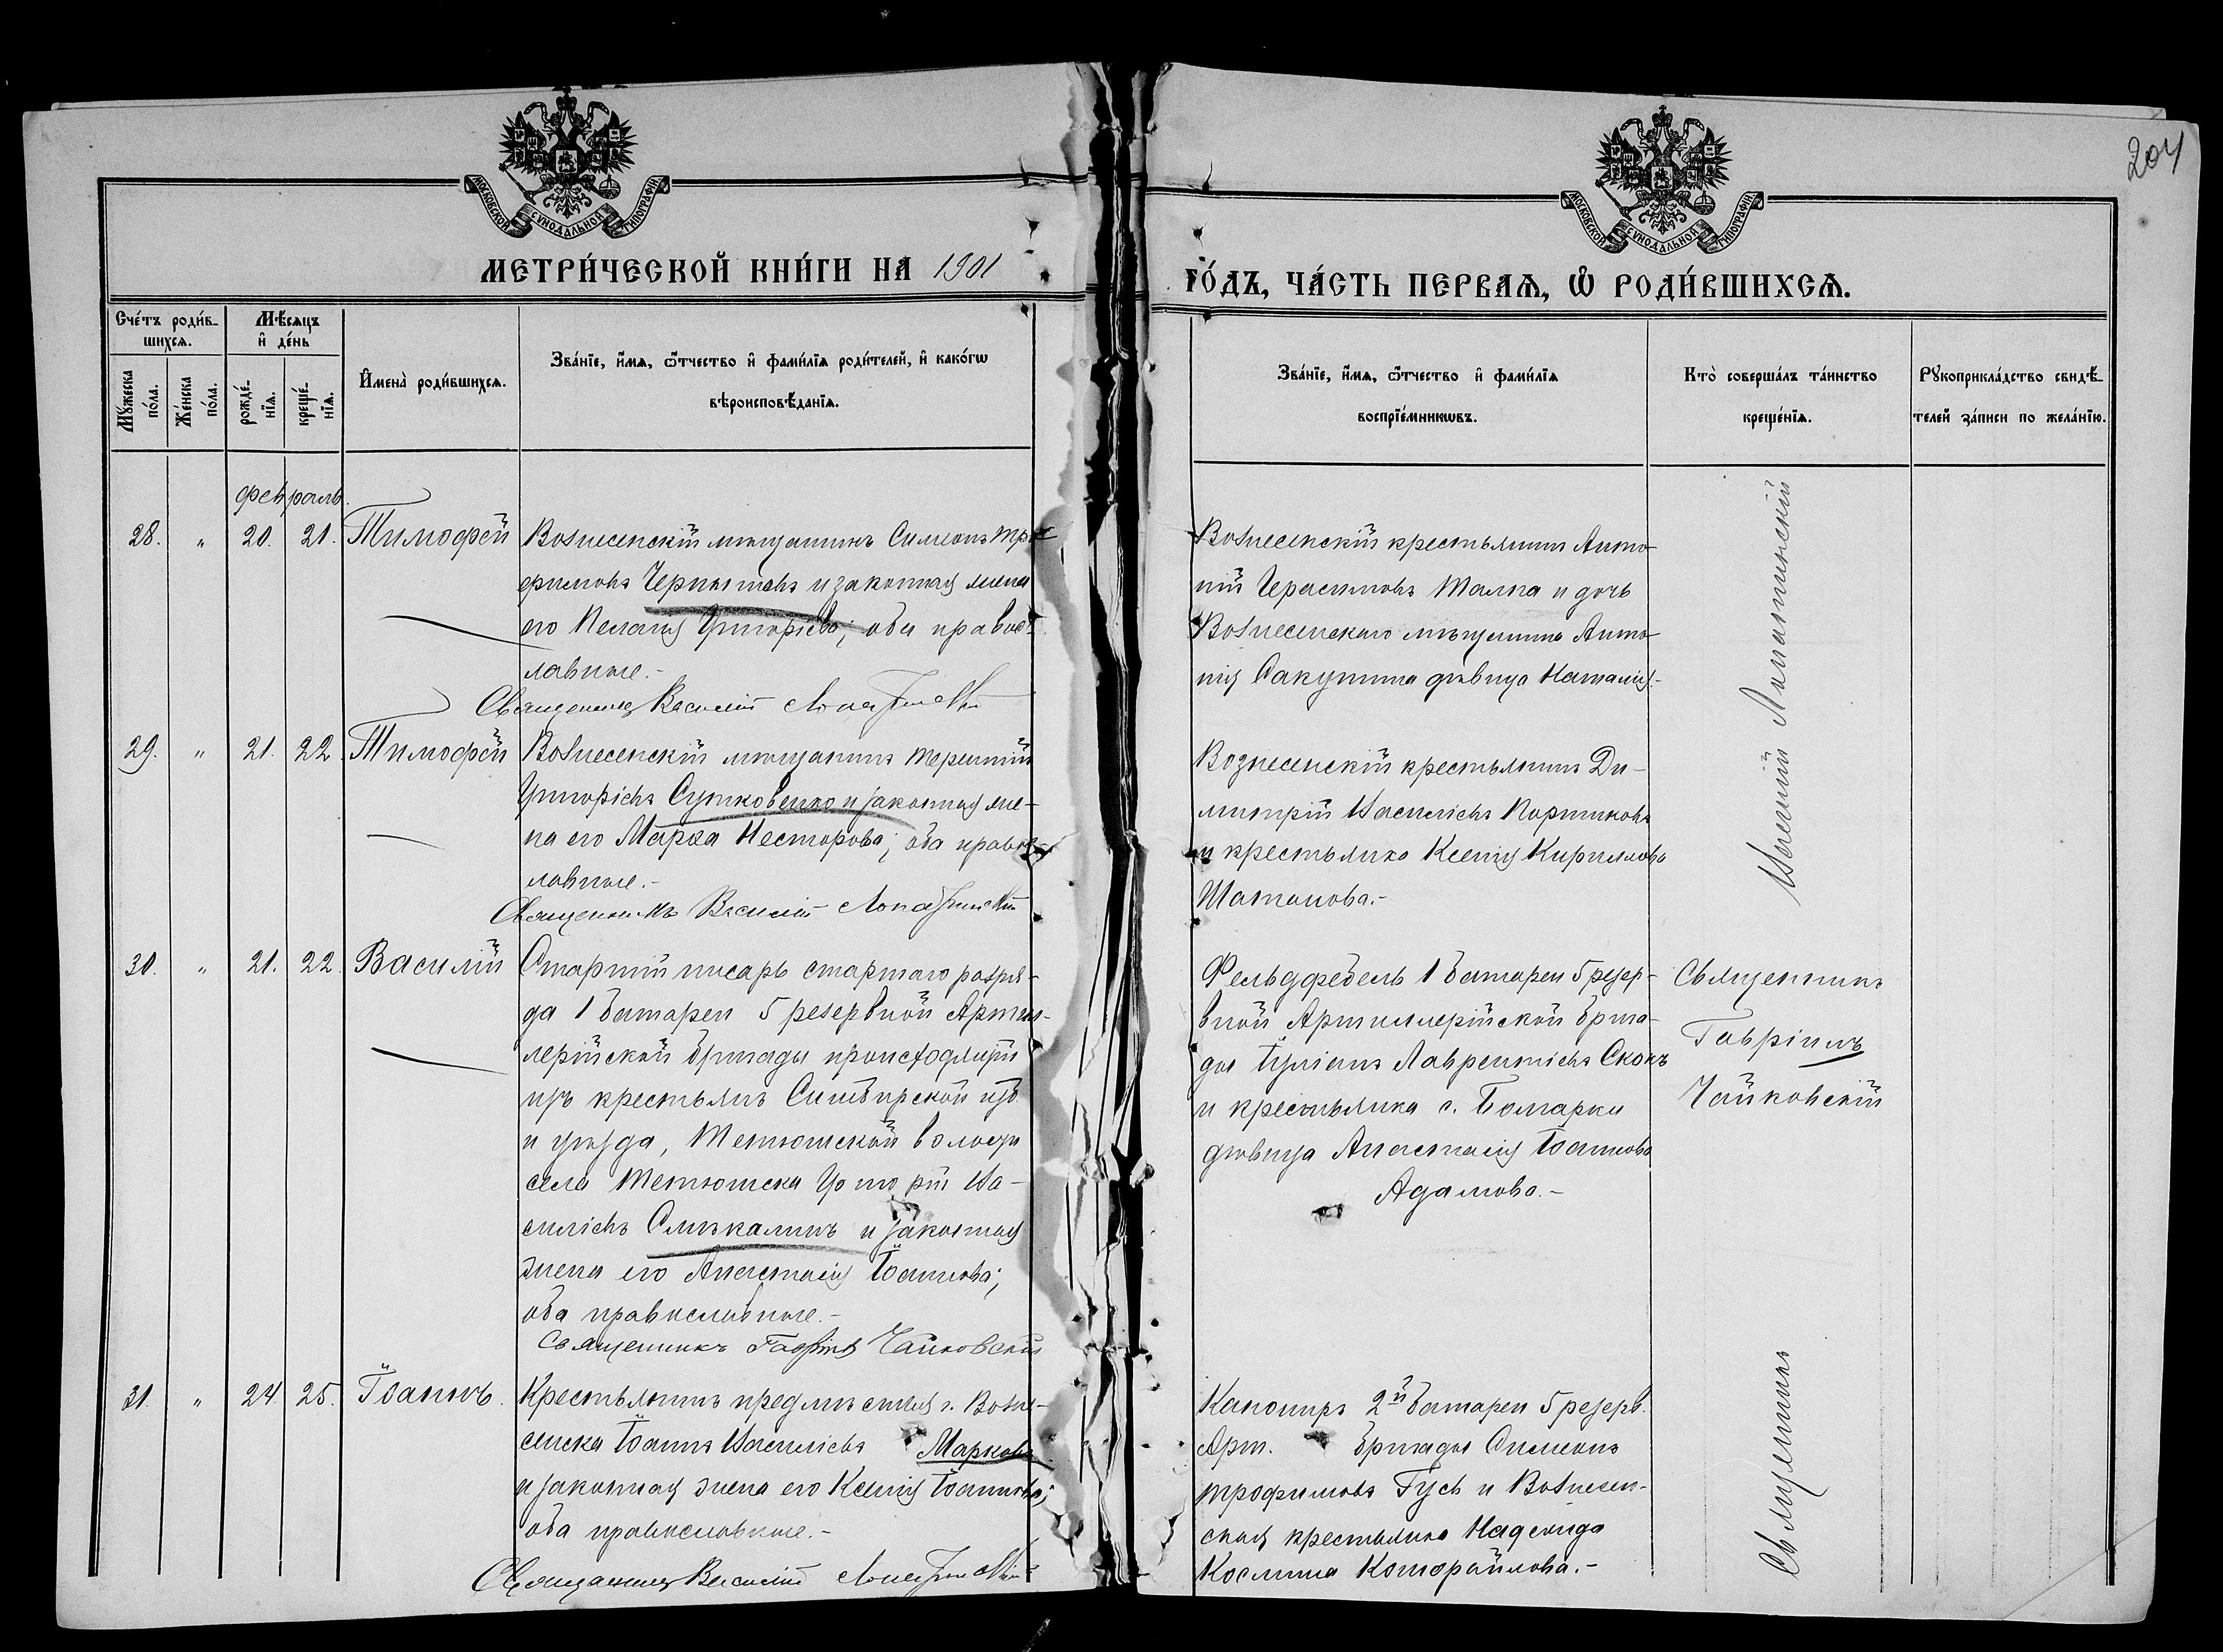 204
МОСКОВСКОЙ СѴНОДАЛЬНОЙ ТИПОГРАФІИ
МОСКОВСКОЙ СѴНОДАЛЬНОЙ ТИПОГРАФІИ
МЕТРИ́ЧЕСКОЙ КНИ́ГИ НА 1901
ГО́ДЪ, ЧА́СТЬ ПЕРВАѦ, Ѡ҆ РОДИ́ВШИХСѦ.
Сче́тъ роди́в-
шихсѧ.
Мѣ́сѧцъ
и҆ де́нь
Мꙋ́жеска
по́ла.
Же́нска
по́ла.
рожде́-
нїѧ.
креще́-
нїѧ.
И҆мена̀ роди́вшихсѧ.
Зва́нїе, и҆́мѧ, ѻ҆́тчество и҆ фами́лїѧ роди́телей, и҆ како́гѡ
вѣроисповѣ́данїѧ.
Зва́нїе, и҆́мѧ, ѻ҆́тчество и҆ фами́лїѧ
воспрїе́мникѡвъ.
Кто̀ соверша́лъ та́инство
креще́нїѧ.
Рꙋкоприкла́дство свидѣ́-
телей за́писи по жела́нїю.
февраль.
28. " 20. 21. Тимофей
Вознесенскій мѣщанинъ Симеонъ Тро-
фимовъ и законная жена
его Пелагія Григоріева; оба правос-
лавные.-
Священникъ Василій Лопатинскій
Вознесенскій крестьянинъ Анто-
ній Герасимовъ и дочь
Вознесенскаго мѣщанина Анто-
нія Сакунина дѣвица Наталія.-
29. " 21. 22. Тимофей
Вознесенскій мѣщанинъ Терентій
Григоріевъ Сутковенко и законная же-
на его Марѳа Несторова; оба правос-
лавные.-
Священникъ Василій Лопатинскій
Вознесенскій крестьянинъ Ди-
митрій Васильевъ Портновъ
и крестьянка Ксенія Кириллова
Шатанова.-
Василій Лопатинскій
30. " 21. 22. Василій
Старшій писарь старшаго разря-
да 1 батареи 5 резервной Артил-
лерійской бригады происходящій
изъ крестьянъ Симбирской губ.
и уѣзда, Тетюшской волости
села Тетюшска Григорій Ва-
силіевъ Смѣкалинъ и законная
жена его Анастасія Іоаннова;
оба православные.-
Священникъ Гавріилъ Чайковскій
Фельдфебель 1 батареи 5 резер-
вной Артиллерійской брига-
ды Іуліанъ Лаврентіевъ Скокъ
и крестьянка с. Болгарки
дѣвица Анастасія Іоаннова
Адамова.-
Священникъ
Гавріилъ
Чайковскій
31. " 24. 25. Іоаннъ.
Крестьянинъ предмѣстія г. Возне-
сенска Іоаннъ Васильевъ Марковъ
и законная жена его Ксенія Іоаннова;
оба православные.-
Священникъ Василій Лопатинскій
Канониръ 2й батареи 5 резерв.
Арт. бригады Симеонъ
Трофимовъ Гусь и Вознесен-
ская крестьянка Надежда
Косьмина
Священникъ